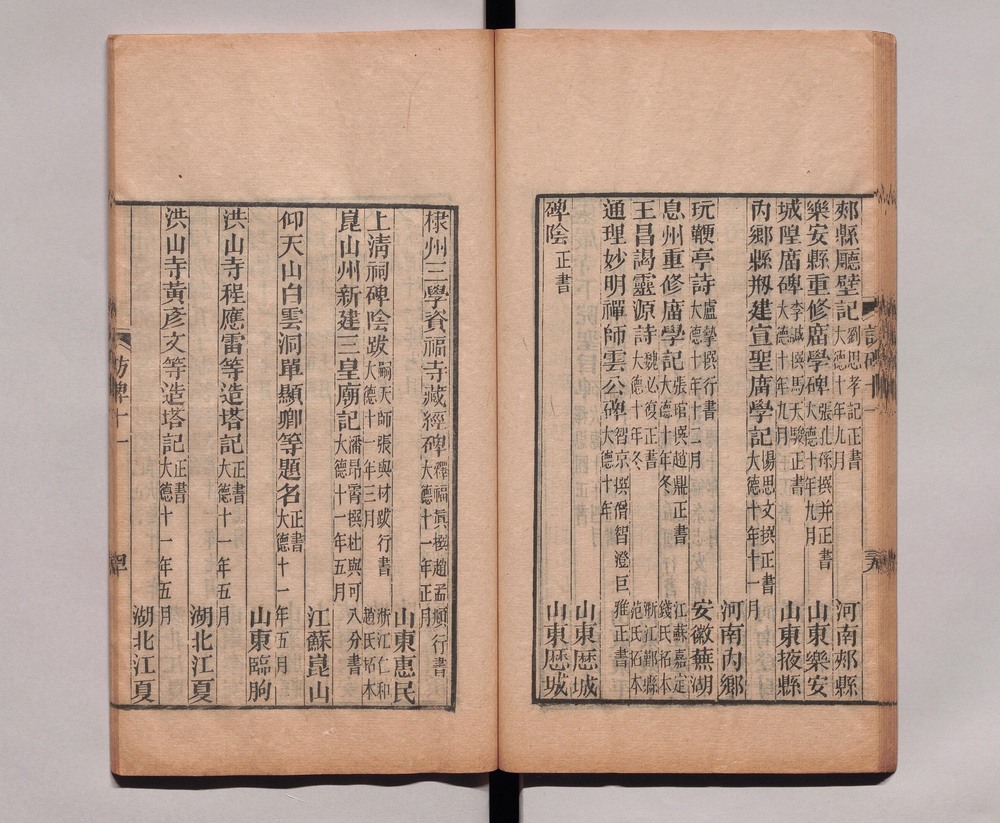 郟縣廳壁記 劉思孝記正書 大德十年九月 河南郟縣
樂安縣重修庿學碑 張孔孫撰并正書 大德十年九月 山東樂安
城隍庿碑 李誠撰馬天駿正書 大德十年九月 山東掖縣
內鄉縣剏建宣聖庿學記 湯思文撰正書 大德十年十一月
河南內鄉
玩鞭亭詩 盧摯撰行書 大德十年十二月 安徽蕪湖
息州重修庿學記 張琯撰趙鼎正書 大德十年冬 江蘇嘉定 錢氏拓本
王昌謁靈源詩 魏必復正書 大德十年冬 浙江鄞縣 范氏拓本
通理妙明禪師雲公碑 智京撰僧智澄巨雅正書 大德十年
山東歷城
碑陰 正書 山東歷城
棣州三學資福寺藏經碑 釋福眞撰趙孟頫行書 大德十一年正月
山東惠民
上淸祠碑陰跋 嗣天師張與材跋行書 大德十一年三月 浙江仁和 趙氏拓本
崑山州新建三皇廟記 潘昂霄撰杜與可八分書 大德十一年五月
江蘇崑山
仰天山白雲洞單顯卿等題名 正書 大德十一年五月
山東臨朐
洪山寺程應雷等造塔記 正書 大德十一年五月
湖北江夏
洪山寺黃彥文等造塔記 正書 大德十一年五月
湖北江夏
訪碑十一